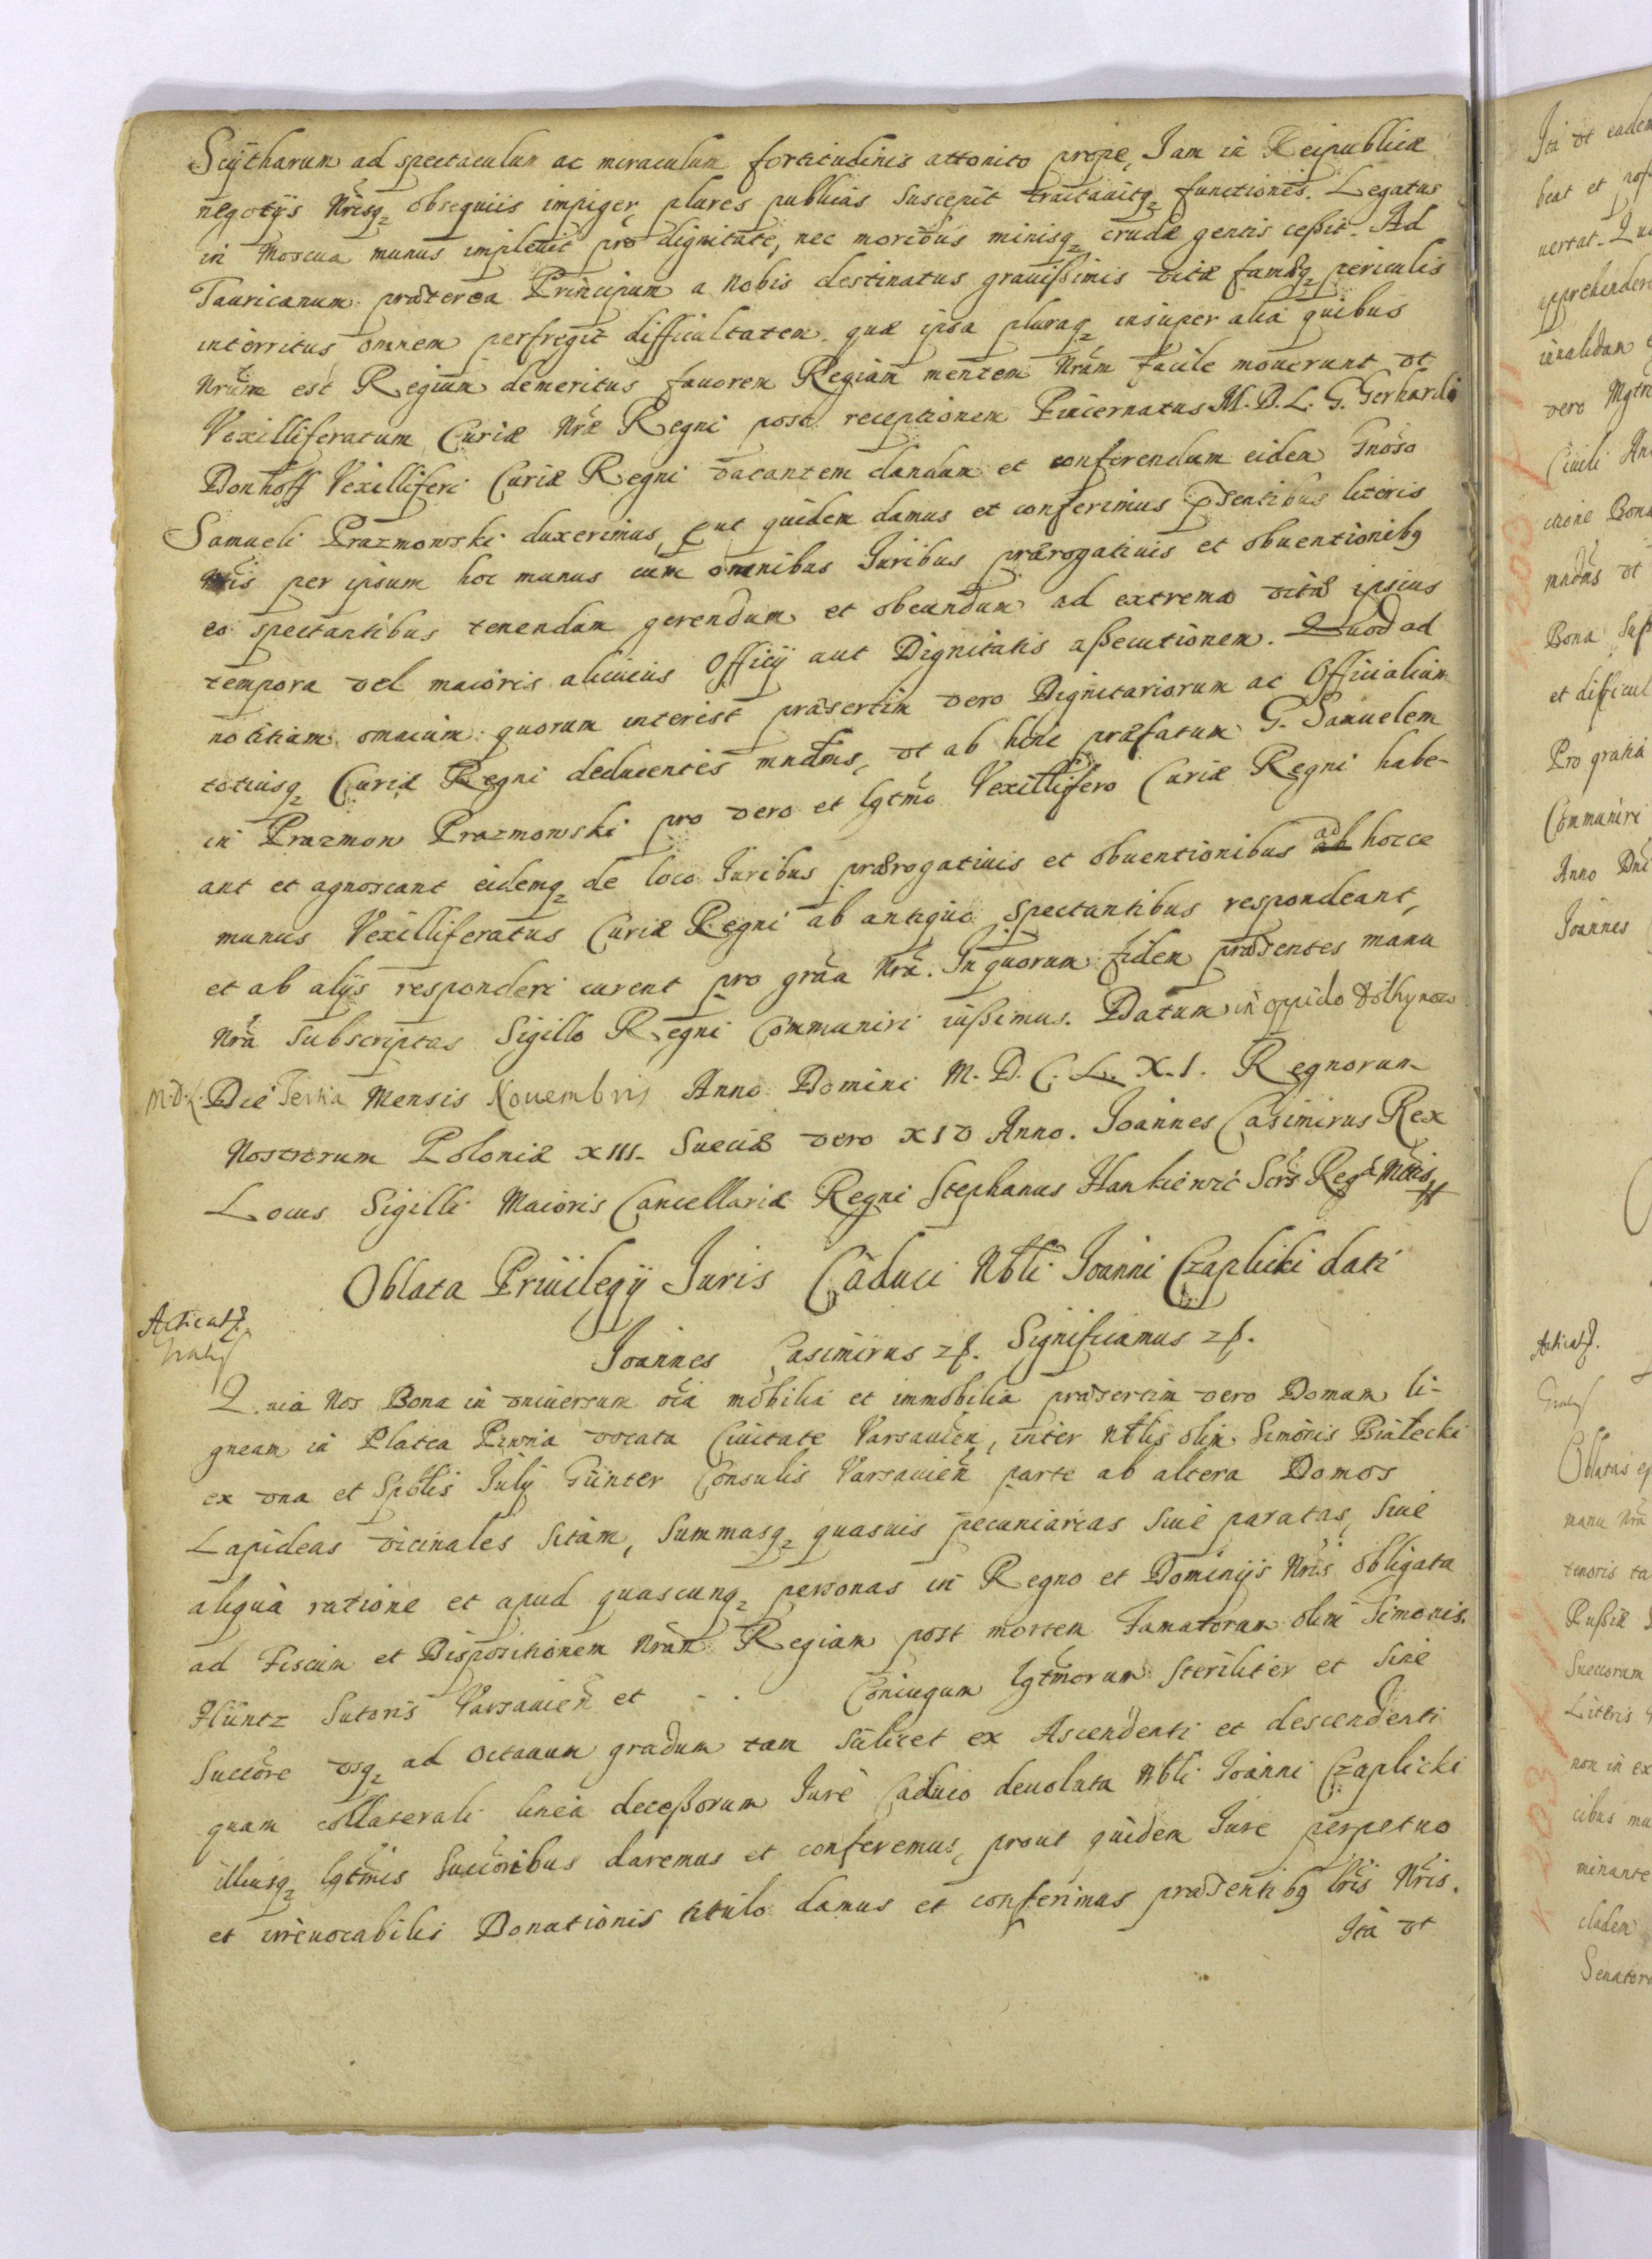 Scÿtharum ad spectaculum ac miraculum fortitudinis attonito prope, Iam in Reipublicæ
negotÿs Nrisq₂ obsequiis impiger, plures publicas suscepit tractauitq₂ functiones. Legatus
in Moscua munus impleuit pro dignitate, nec moribus minisq₂ crudæ gentis ceßit. Ad
Tauricanum præterea Principum a nobis destinatus grauißimis vitæ famæq₂ periculis
interritus omnem perfregit difficultatem quæ ipsa pluraq₂ insuper alia quibus
Nrum est Regium demeritus fauorem Regiam mentem Nram facile mouerunt vt
Vexilliferatum Curiæ Nræ Regni post receptionem Pincernatus M. D. L. G. Gerhardi
Donhoff Vexilliferi Curiæ Regni vacantem dandum et conferendum eidem Gnoso
Samueli Prazmowski duxerimus, put quidem damus et conferimus pntibus literis
Nris per ipsum hoc munus cum omnibus Iuribus prærogatiuis et obuentionibq
eo spectantibus tenendum gerendum et obeundum ad extrema vitæ ipsius
tempora vel maioris alicuius Officÿ aut Dignitatis aßecutionem. Quod ad
notitiam omnium quorum interest præsertim vero Dignitariorum ac Officialium
totiusq₂ Curiæ Regni deducentes mndms, vt ab hinc præfatum G. Samuelem
in Prazmow Prazmowski pro vero et lgtmo Vexillifero Curiæ Regni habe-
ant et agnoscant eidemq₂ de loco Iuribus prærogatiuis et obuentionibus ad hocce
munus Vexilliferatus Curiæ Regni ab antiquo spectantibus respondeant,
et ab alÿs responderi curent pro graa Nra. In quorum fidem præsentes manu
Nra subscriptas Sigillo Regni Communiri iußimus. Datum in oppido
M. D. L. Die Tertia Mensis Nouembris Anno Domini M. D. C. L. X. I. Regnorum
Nostrorum Poloniæ XIII. Sueciæ vero XIV Anno. Ioannes Casimirus Rex
Locus Sigilli Maioris Cancellariæ Regni Stephanus Hankiewic Scrs Reg Mttis
Oblata Priuilegÿ Iuris Caduci Nbli Ioanni Czaplicki dati
Acticat.
Ioannes Casimirus zf. Significamus zf.
Quia Nos Bona in vniuersum oia mobilia et immobilia præsertim vero Domum li-
gneam in Platea Piwna vocata Ciuitate Varsauien, inter Nblis olim Simonis Białecki
ex vna et Spblis Iulÿ Günter Consulis Varsauien parte ab altera Domos
Lapideas vicinales sitam, summasq₂ quasuis pecuniarias siue paratas, siue
aliqua ratione et apud quascunq₂ personas in Regno et Dominÿs Nris obligata
ad Fiscum et Dispositionem Nram Regiam post mortem Famatorum olim Simonis
Hüntz Sutoris Varsauien et . . Coniugum lgtmorum steriliter et sine
Succore vsq₂ ad octauum gradum tam scilicet ex Ascendenti et descendenti
quam collaterali linea deceßorum Iure Caduco deuoluta Nbli Ioanni Czaplicki
illiusq₂ lgtmis Succoribus daremus et conferemus, prout quidem Iure perpetuo
et irreuocabilis Donationis titulo damus et conferimus præsentibq lris Nris.
Ita vt
Ita vt eadem
beat et
uertat.
apprehendere
inualidam
vero Mgtr
Ciuili
ctione Bono
mndms vt
Bona
et difficul
Pro gratia
Communiri
Anno Dni
Ioannes
Acticat.
Oblatas
manu Nra
tenoris ta
Rußiæ
Succorum
Littris
non in ex
cibus mu
minante
cludem
Senatoro